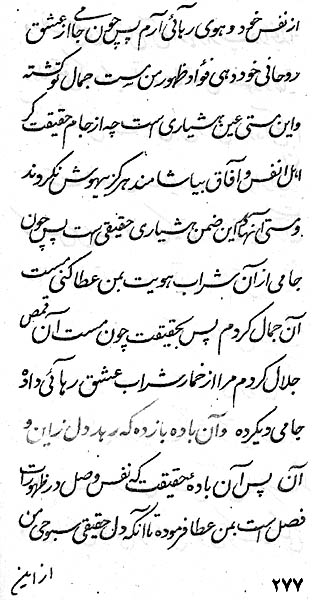 از نفس خود و هوی رهائی آرم پس چون می جا از عشق
روحانی خود دهی فؤاد ظهور من مست جمال تو گشته
واین مستی عین هشیاری است چه از جام حقیقت گر
اهل انفس و آفاق بیاشامند هرگز بیهوش نگردند
ومستی آنها هم این ضمن هشیاری حقیقی است پس چون
جامی از آن شراب هویت بمن عطا کنی مست
آن جمال کردم پس بحقیقت چون مست آن قمص
جلال کردم مرا از خمار شراب عشق رهائی داده
جامی دیگر ده وآن باده باز ده که رهاند دل از این و
آن پس آن بادهٔ حقیقت که نفس وصل در ظهورات
فصل است بمن عطا فرموده تا آنکه دل حقیقی سبوحی من
از این
۲۷۷